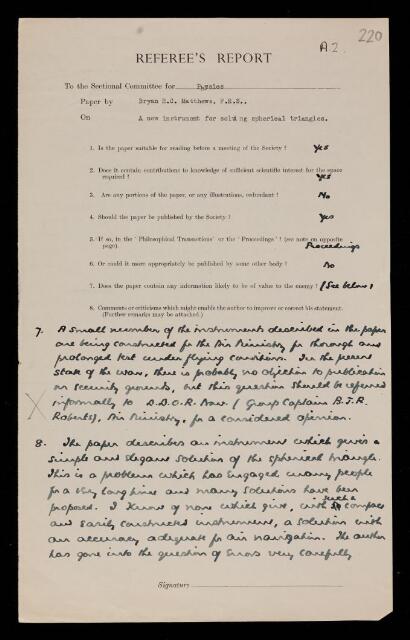 220
A2.
REFEREE'S REPORT
To the Sectional Committee for Physics
Paper by Bryan H.C. Matthews, F.R.S.,
On A new instrument for solving spherical triangles.
1. Is the paper suitable for reading before a meeting of the Society? Yes
2. Does it contain contributions to knowledge of sufficient scientific interest for the space
required? Yes
3. Are any portions of the paper, or any illustrations, redundant? No
4. Should the paper be published by the Society? Yes
5. If so, in the 'Philosophical Transactions' or the 'Proceedings'? (see note on opposite
page). Proceedings
6. Or could it more appropriately be published by some other body? No
7. Does the paper contain any information likely to be of value to the enemy? (See below)
8. Comments or criticisms which might enable the author to improve or correct his statement.
(Further remarks may be attached.)
7. A small number of the instruments described in the paper
are being constructed for the Air Ministry for through and
prolonged test under flying conditions. In the present
state of the war, there is probably no objection to publication
on security grounds, but this question should be referred
X informally to D.D.O.R. Nav. (Group Captain
Roberts), Air Ministry, for a considered opinion.
8. The paper describes an instrument which gives a
simple and elegant solution of the spherical triangle.
This is a problem which has engaged many people
for a very long time and many solutions have been
proposed. I know of none which give, with such a compact
and easily constructed instrument, a solution with
an accuracy adequate for air navigation. The author
has gone into the question of errors very carefully
Signature